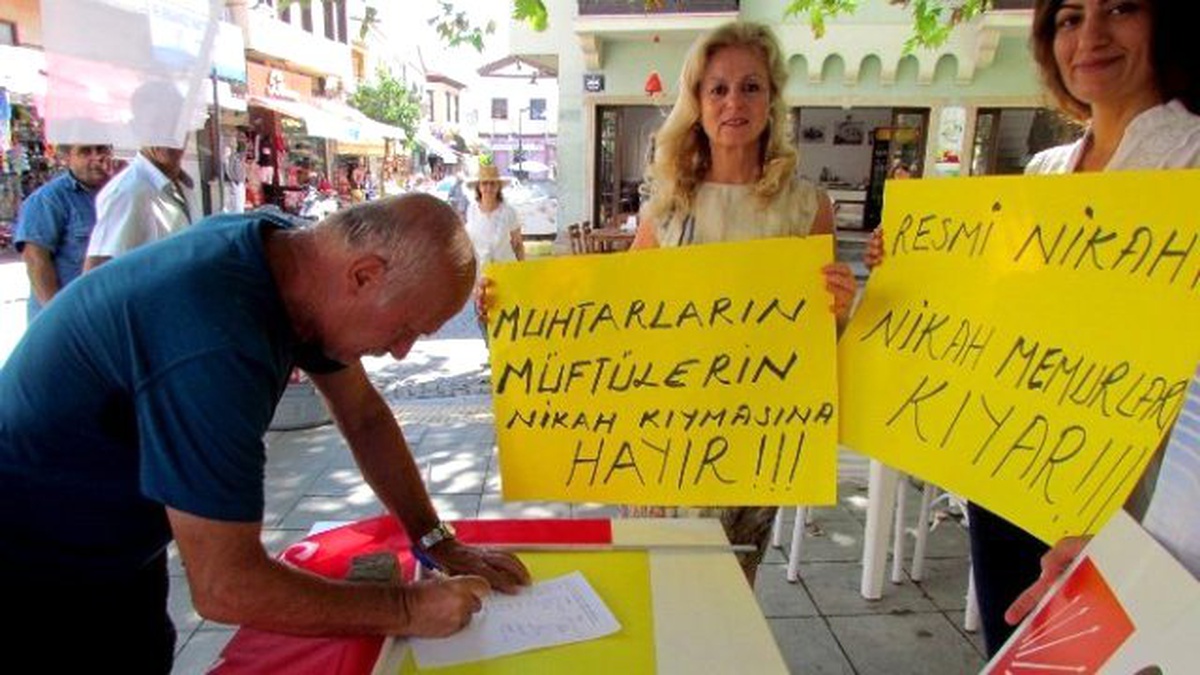 MUHTARLARIN
MÜFTÜLERİN
NİKAH KIYMASINA
HAYIR!!!
RESMİ NİKAHI
NİKAH MEMURLARI
KIYAR!!!